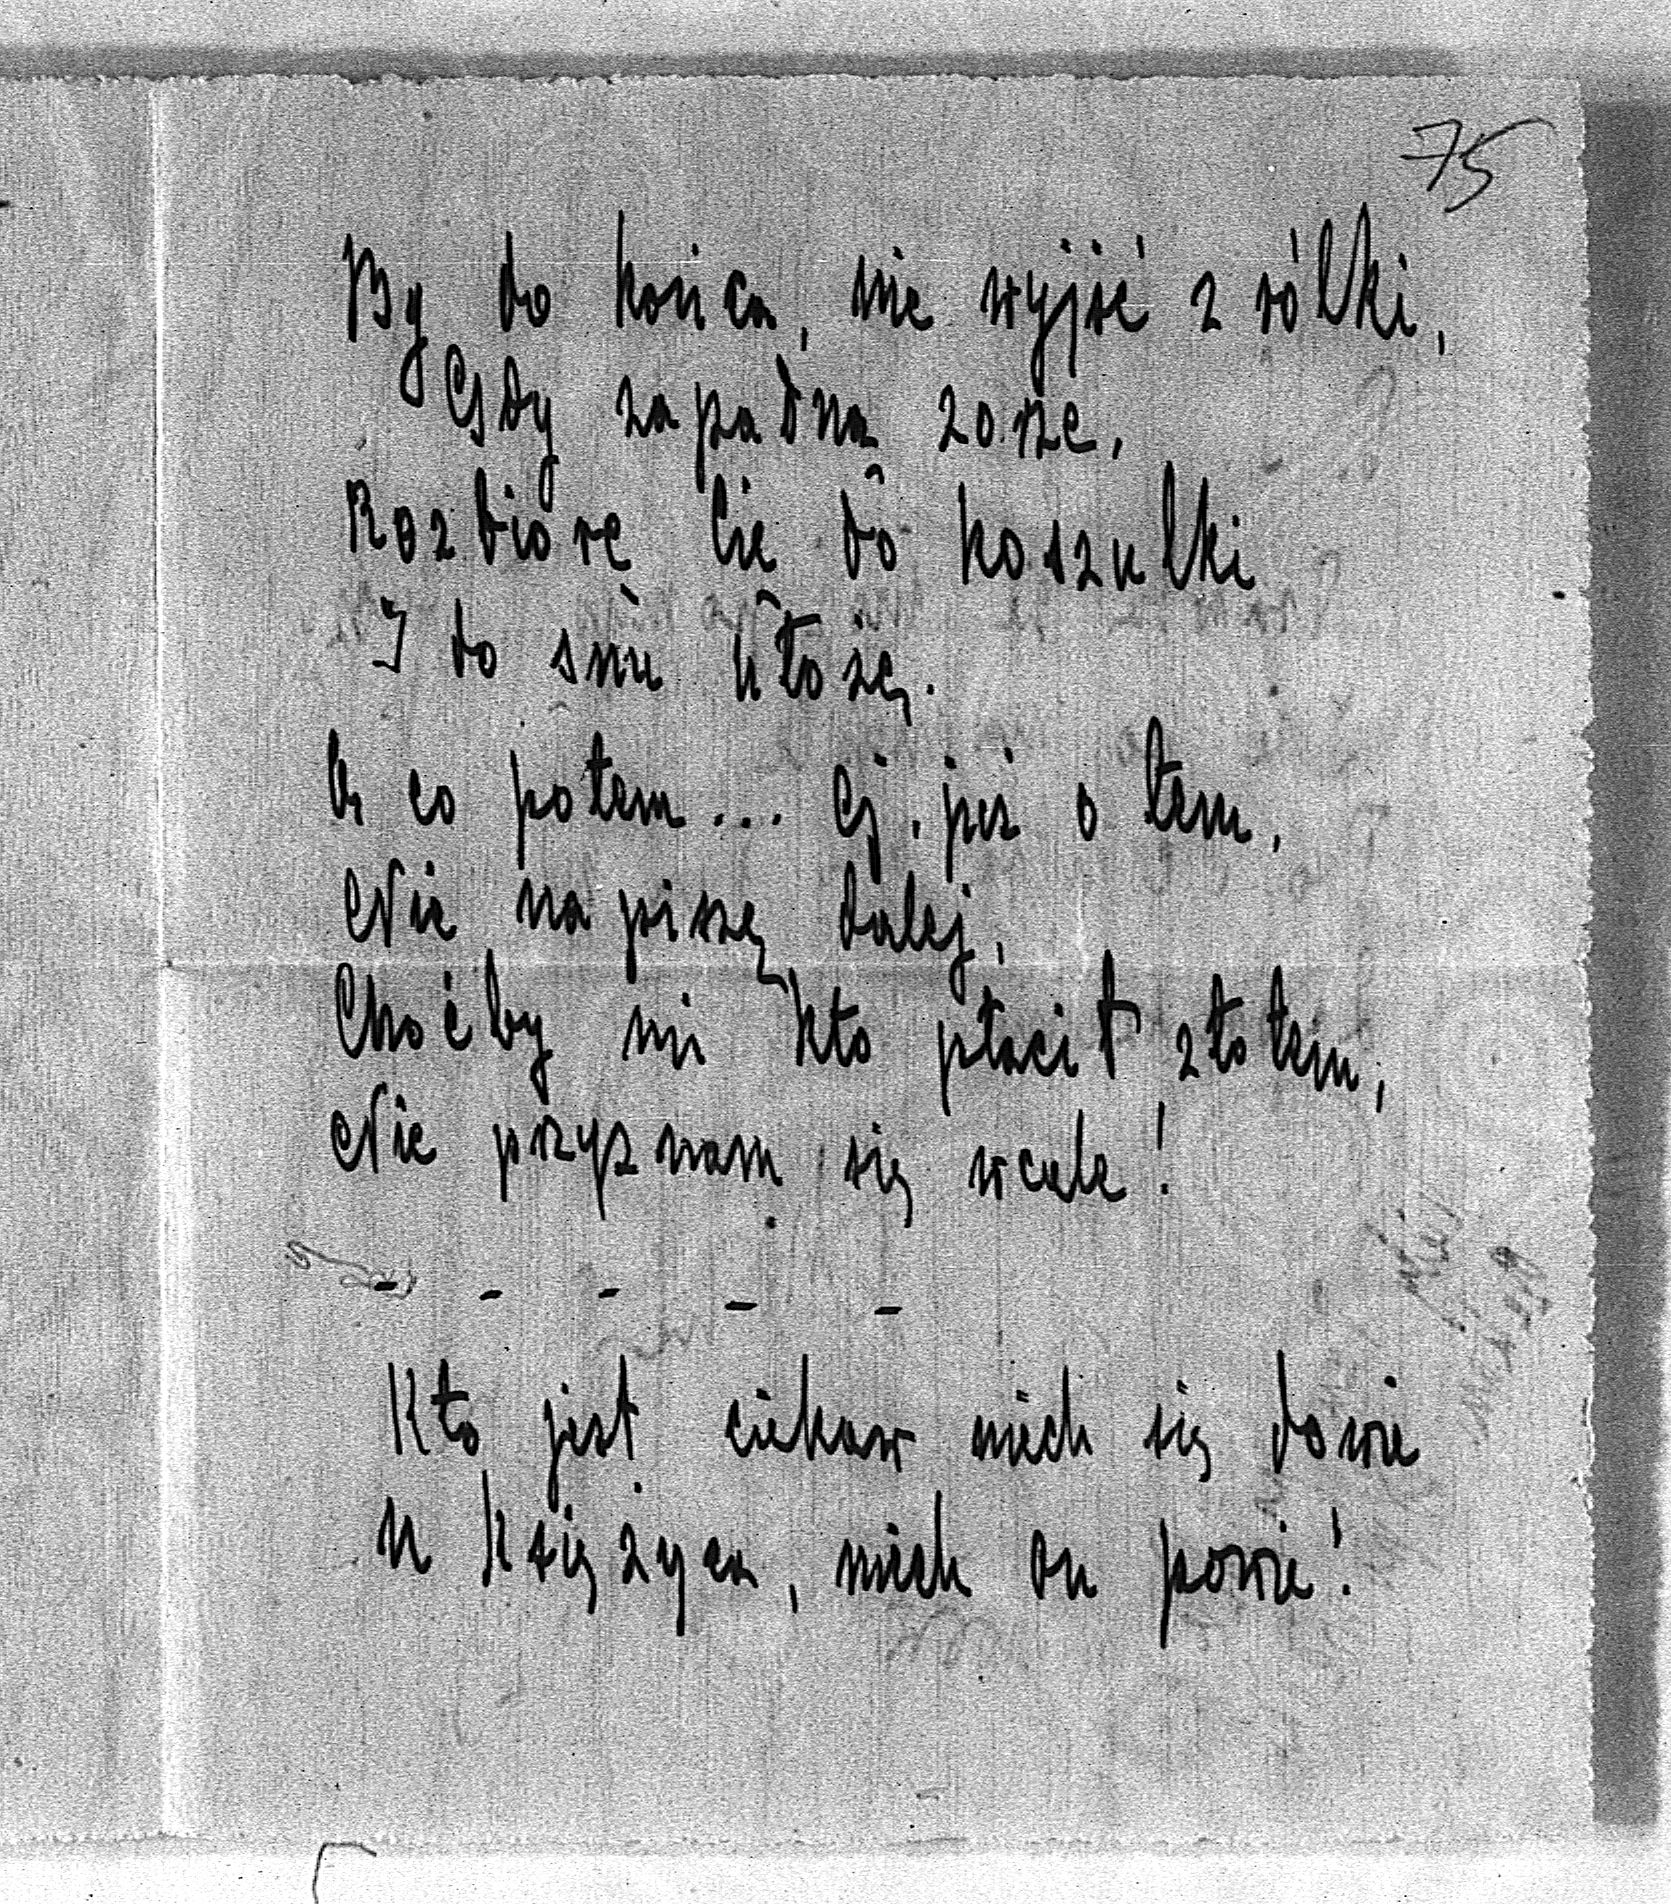 75
By do końca, nie wyjść z rólki,
Gdy zapadną zorze,
Rozbiorę Cię do koszulki
I do snu ułożę.
A co potem... ej, już o tem,
Nie napiszę dalej,
Choćby mi kto płacił złotem,
Nie przyznam się wcale!
- - - - -
Kto jest ciekaw niech się dowie
u księżyca, niech on powie!